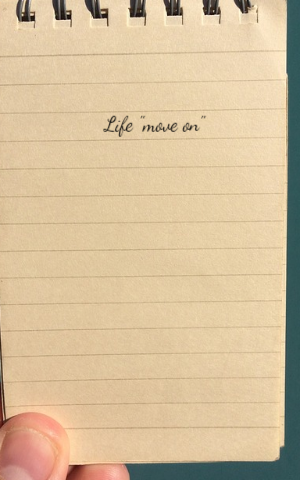 Life "move on"